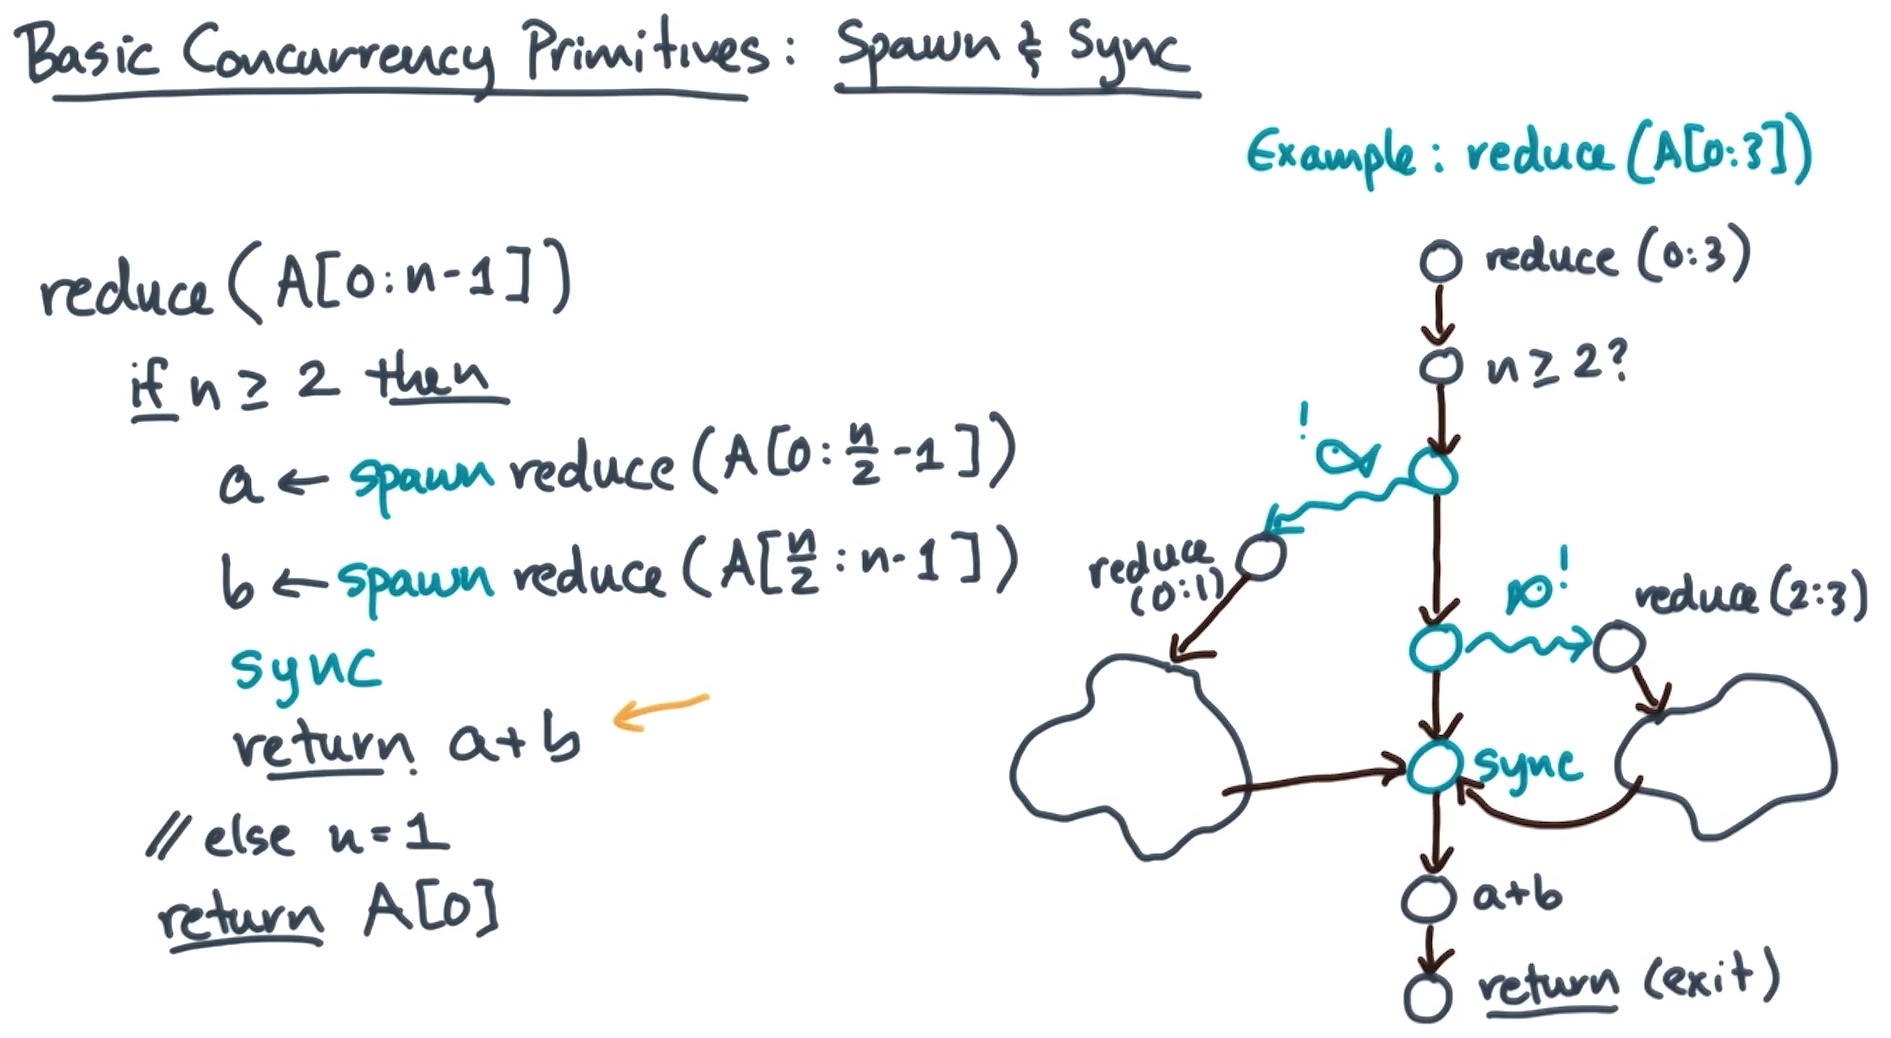 Basic Concurrency Primitives: Spawn & Sync
Example: reduce (A[0:3])
reduce (A[0:n-1])
if n ≥ 2 then
a ← spawn reduce (A[0:n/2-1])
b ← spawn reduce (A[n/2:n-1])
sync
return a+b
// else n=1
return A[0]
reduce (0:3)
n ≥ 2?
!
reduce
(0:1)
!
reduce (2:3)
sync
a+b
return (exit)